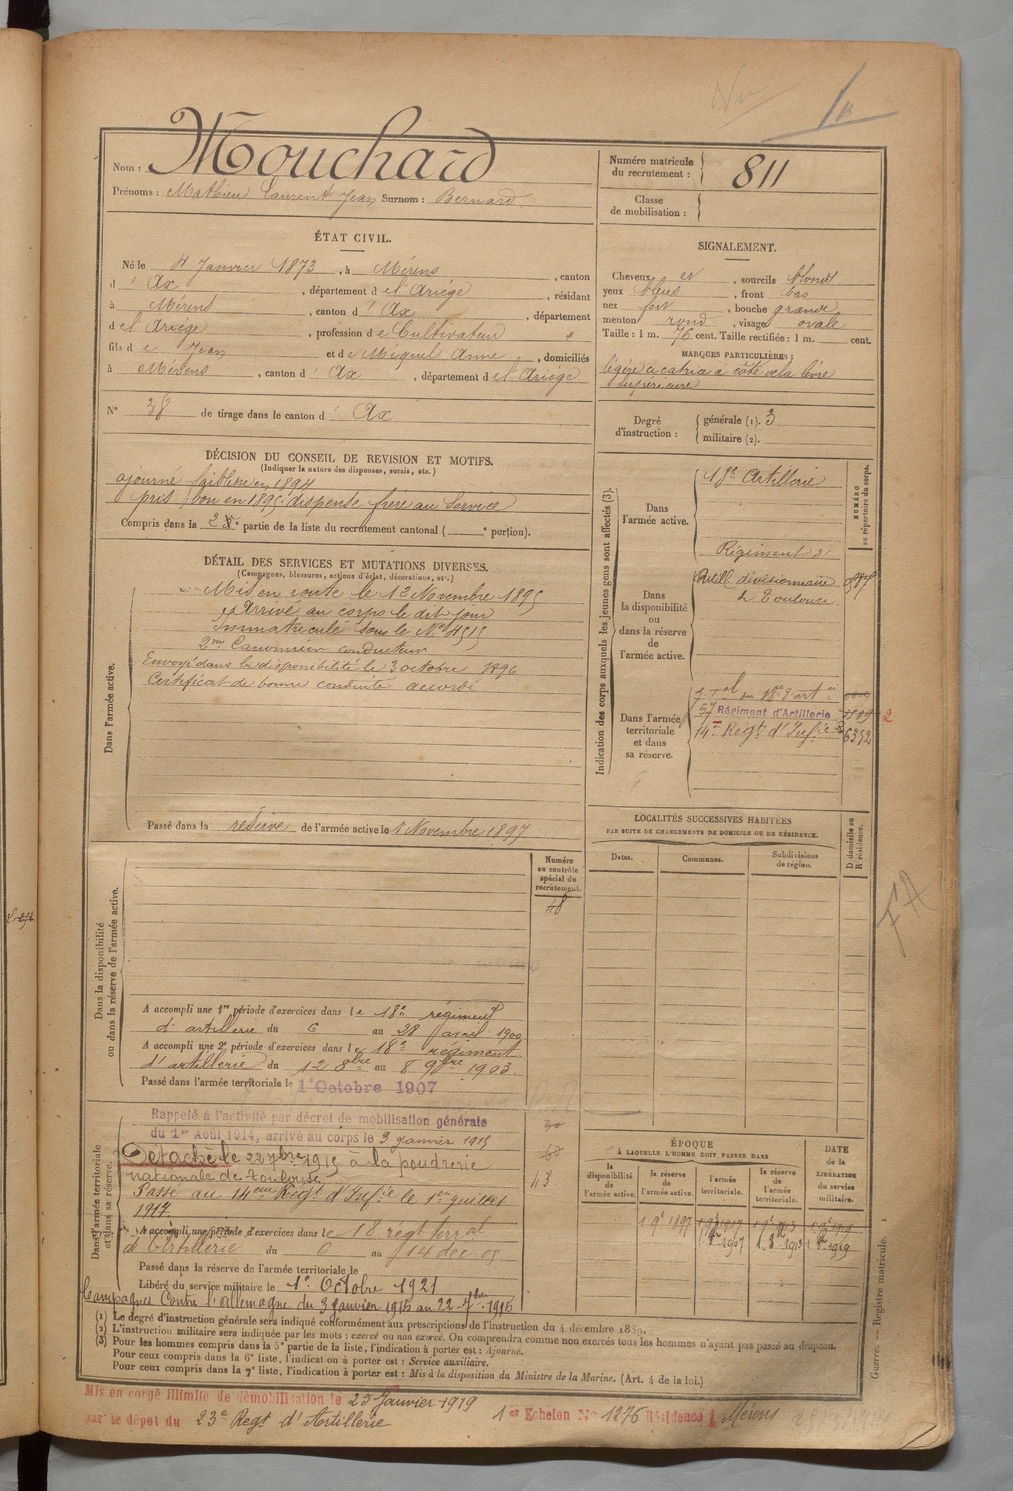 Nom : Mouchard
Prénoms : Mathieu Laurent Jean Surnom : Bernard
Numéro matricule
du recrutement : 811
Classe
de mobilisation :
ÉTAT CIVIL.
Né le 4 Janvier 1873, à Mérens, canton
d' Ax, département d e l'Ariège, résidant
à Mérens, canton d' Ax, département
d e l'Ariège, profession d e Cultivateur
fils d e Jean et d e Miquel Anne, domiciliés
à Mérens, canton d' Ax, département d e l'Ariège
N° 38 de tirage dans le canton d' Ax
SIGNALEMENT.
Cheveux et, sourcils blond
yeux bleus, front bas
nez fort, bouche grande
menton rond, visage ovale
Taille : 1 m. 76 cent. Taille rectifiée : 1 m. cent.
MARQUES PARTICULIÈRES :
légère cicatrice à côté de la lèvre
supérieure
Degré
d'instruction :
générale (1). 3
militaire (2).
DÉCISION DU CONSEIL DE REVISION ET MOTIFS.
(Indiquer la nature des dispenses, sursis, etc.)
ajourné faiblesse en 1894
pris bon en 1895 dispensé frère au service
Compris dans la 2e partie de la liste du recrutement cantonal ( e portion).
DÉTAIL DES SERVICES ET MUTATIONS DIVERSES.
(Campagnes, blessures, actions d'éclat, décorations, etc.)
Dans l'armée active.
Mis en route le 12 Novembre 1895
Arrivé au corps le dit jour
Immatriculé sous le N° 4515
2me Canonnier conducteur
Envoyé dans la disponibilité le 3 octobre 1896
Certificat de bonne conduite accordé
Passé dans la réserve de l'armée active le 1 Novembre 1897
Indication des corps auxquels les jeunes gens sont affectés (3).
NUMÉRO
au répertoire du corps.
Dans
l'armée active.
18e Artillerie
Dans
la disponibilité
ou
dans la réserve
de
l'armée active.
Régiment d'
Artill. divisionnaire
à Toulouse
Dans l'armée
territoriale
et dans
sa réserve.
57 Régiment d'Artillerie
14e Régt d'Infie
6392
LOCALITÉS SUCCESSIVES HABITÉES
PAR SUITE DE CHANGEMENTS DE DOMICILE OU DE RÉSIDENCE.
Dates.
Communes.
Subdivisions
de région.
D domicile ou
R résidence.
Dans la disponibilité
ou dans la réserve de l'armée active.
Numéro
au contrôle
spécial du
recrutement.
48
A accompli une 1re période d'exercices dans le 18e régiment
d'artillerie du 6 au 28 avril 1900
A accompli une 2e période d'exercices dans le 18e régiment
d'artillerie du 12 8bre au 8 9bre 1903.
Passé dans l'armée territoriale le 1 Octobre 1907
Dans l'armée territoriale
et dans sa réserve.
Rappelé à l'activité par décret de mobilisation générale
du 1er Août 1914, arrivé au corps le 3 janvier 1915
Détaché le 22 7bre 1915 à la poudrerie
nationale de Toulouse
Passé au 14eme Régt d'Infie le 1er juillet
1917.
A accompli une période d'exercices dans le 18 régt terral
d'Artillerie du 6 au 14 dec. 08
Passé dans la réserve de l'armée territoriale le
Libéré du service militaire le 1er Octobre 1921
Campagnes Contre l'Allemagne du 3 janvier 1915 au 22 7bre 1915
43
ÉPOQUE
À LAQUELLE L'HOMME DOIT, PASSER DANS
la
disponibilité
de
l'armée active.
la réserve
de
l'armée active.
l'armée
territoriale.
la réserve
de
l'armée
territoriale.
DATE
de la
LIBÉRATION
du service
militaire.
1 9e 1897
(1) Le degré d'instruction générale sera indiqué conformément aux prescriptions de l'instruction du 4 décembre 1889.
(2) L'instruction militaire sera indiquée par les mots : exercé ou non exercé. On comprendra comme non exercés tous les hommes n'ayant pas passé au drapeau.
(3) Pour les hommes compris dans la 5e partie de la liste, l'indication à porter est : Ajourné.
Pour ceux compris dans la 6e liste, l'indication à porter est : Service auxiliaire.
Pour ceux compris dans la 7e liste, l'indication à porter est : Mis à la disposition du Ministre de la Marine. (Art. 4 de la loi.)
Guerre. — Registre matricule. 1
Mis en congé illimité de démobilisation le 25 Janvier 1919
par le dépôt du 23e Regt d'Artillerie 1er Echelon N° 1276 Résidence Mérens
FA